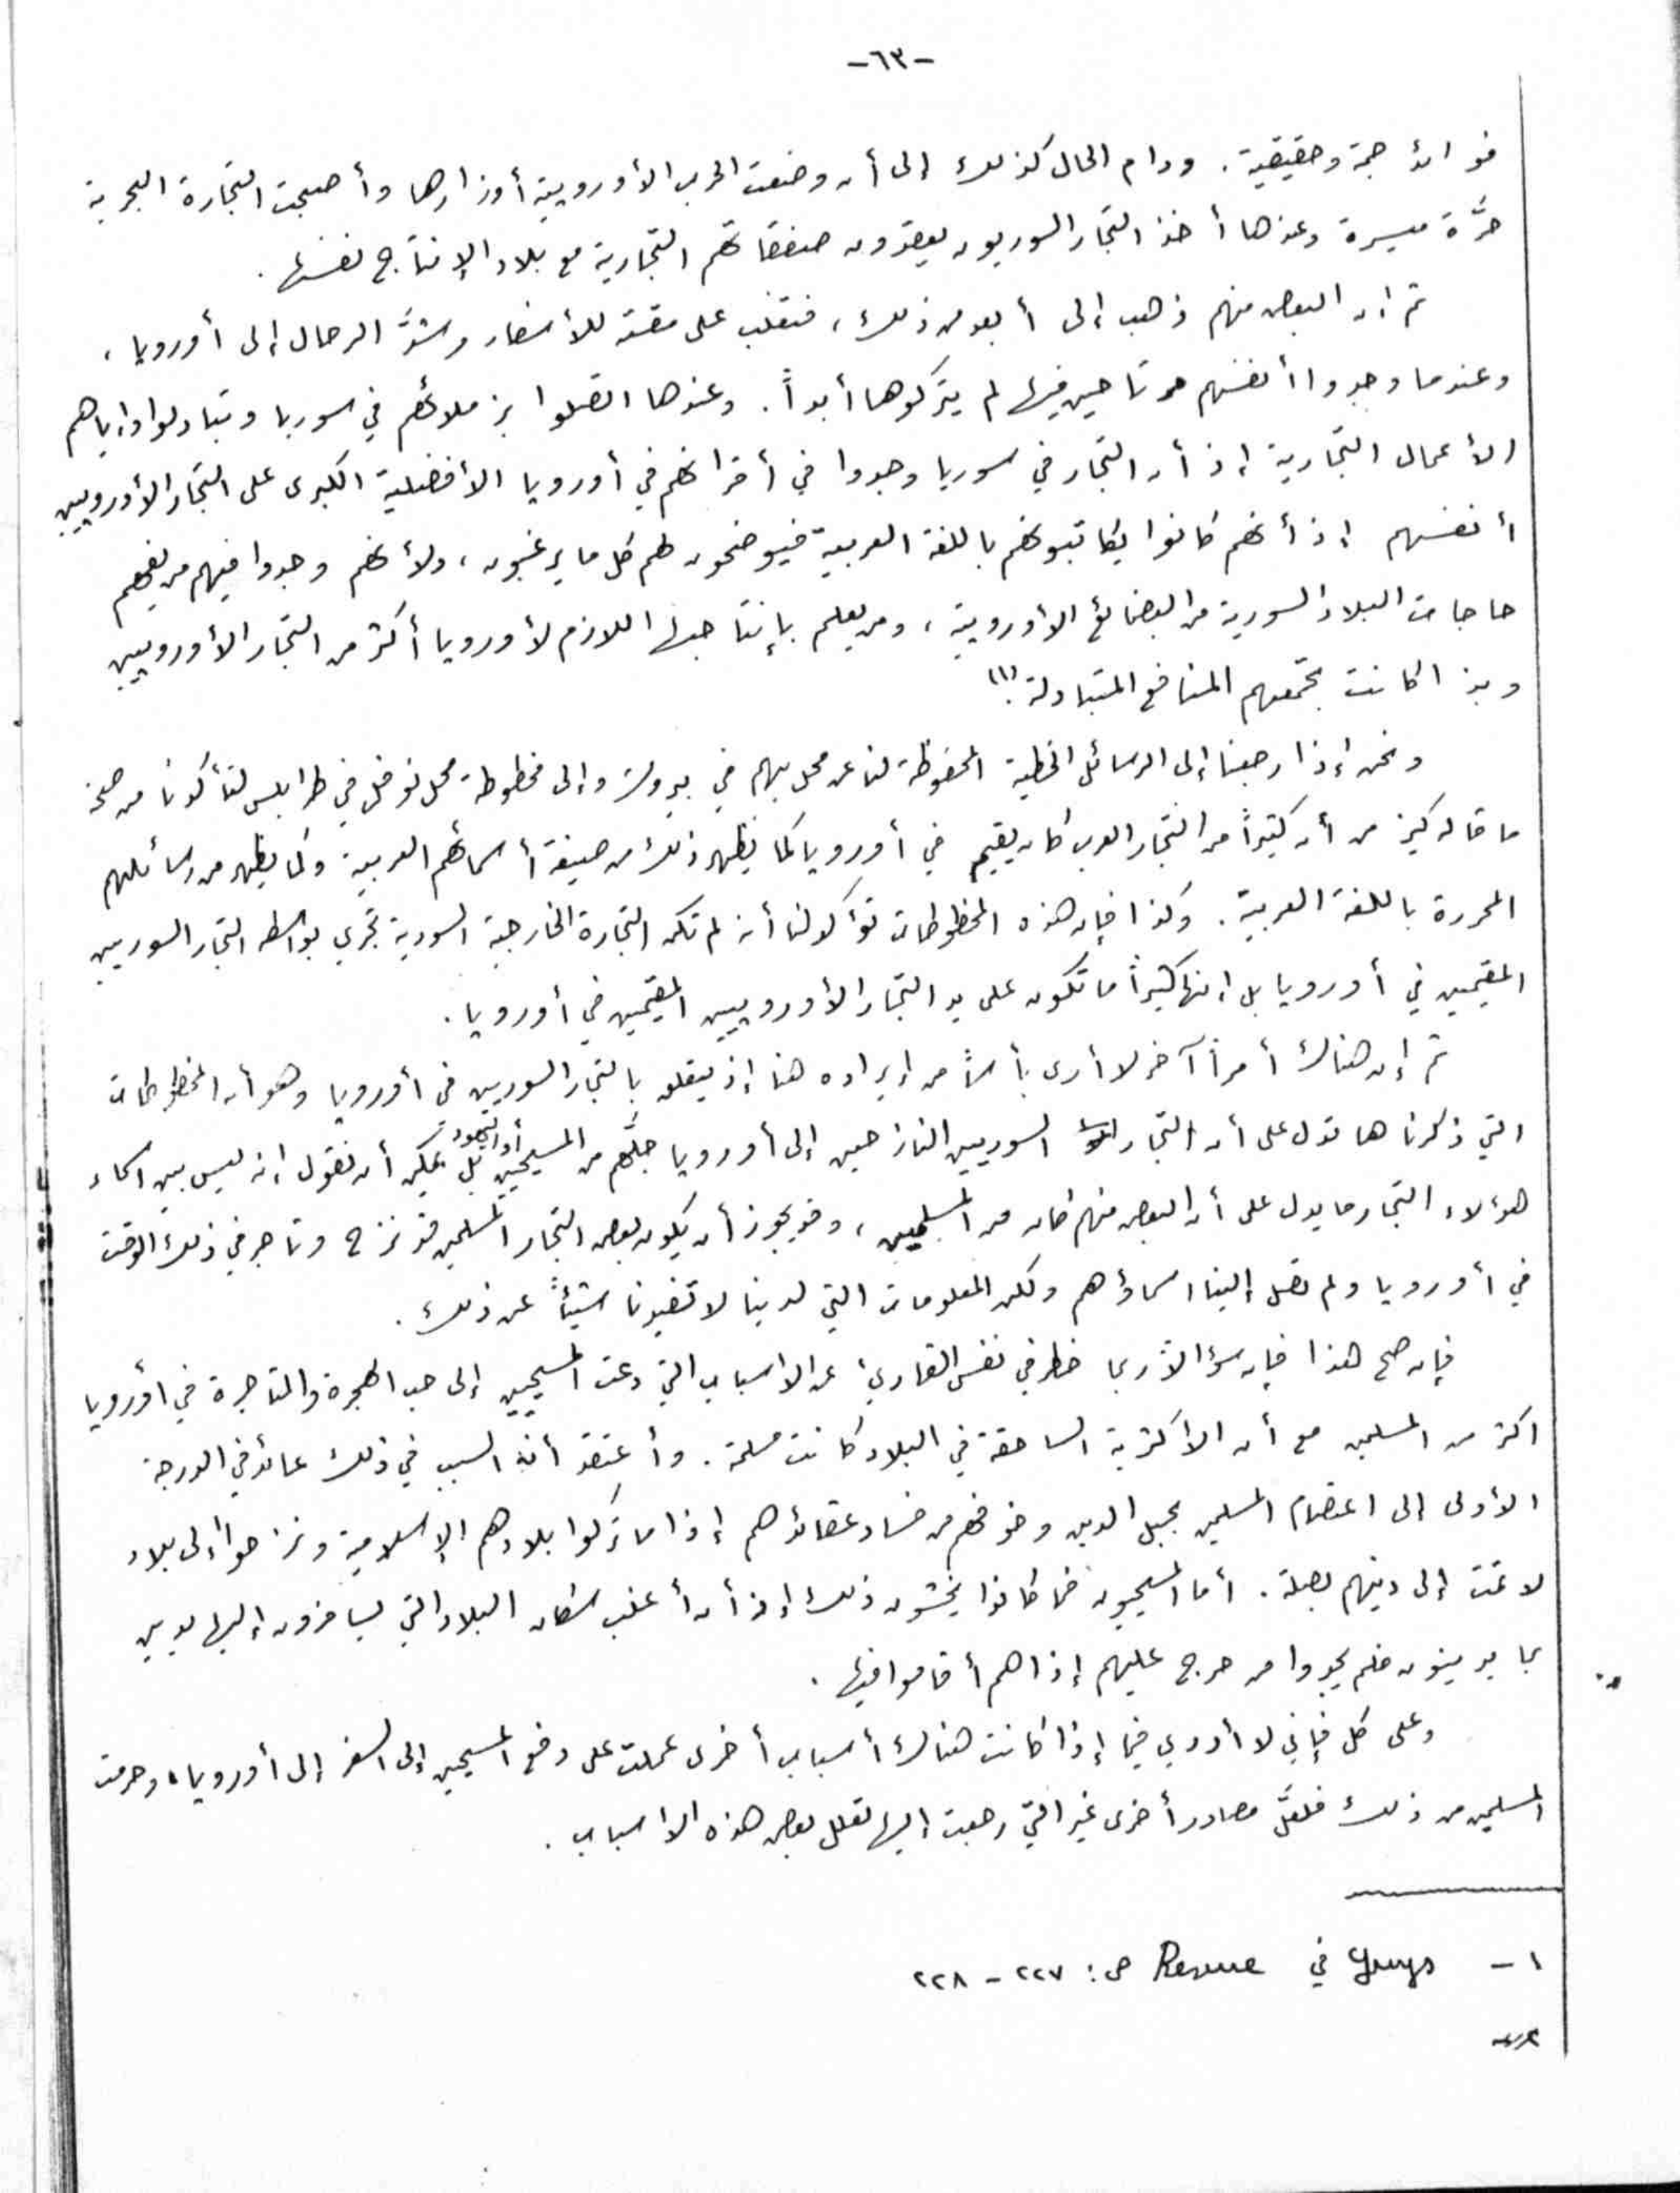 -٦٣-
فوائد جمة وحقيقية. ودام الحال كذلك إلى أن وضعت الحرب الأوروبية أوزارها وأصبحت التجارة البحرية
حرَّة ميسرة وعندها أخذ التجار السوريون يعقدون صفقاتهم التجارية مع بلاد الإنتاج نفسها.
ثم إن البعض منهم ذهب إلى أبعد من ذلك، فتغلب على مقته للأسفار وشدَّ الرحال إلى أوروبا،
وعندما وجدوا أنفسهم مرتاحين فيها لم يتركوها أبداً. وعندها اتصلوا بزملائهم في سوريا وتبادلوا وإياهم
الأعمال التجارية إذ أن التجار في سوريا وجدوا في أقرانهم في أوروبا الأفضلية الكبرى على التجار الأوروبيين
أنفسهم إذ أنهم كانوا يكاتبونهم باللغة العربية فيوضحون لهم كل ما يرغبون، ولأنهم وجدوا فيهم من يفهم
حاجات البلاد السورية من البضائع الأوروبية، ومن يعلم بإنتاجها اللازم لأوروبا أكثر من التجار الأوروبيين
وبذا كانت تجمعهم المنافع المتبادلة.(١)
ونحن إذا رجعنا إلى الرسائل الخطية المحفوظة لنا عن محل بيهم في بيروت وإلى مخطوطة محل نوفل في طرابلس لتأكدنا من صحة
ما قاله كيز من أن كثيراً من التجار العرب كان يقيم في أوروبا كما يظهر ذلك من صيغة أسمائهم العربية وكما يظهر من رسائلهم
المحررة باللغة العربية. وكذا فإن هذه المخطوطات تؤكد لنا أنه لم تكن التجارة الخارجية السورية تجري بواسطة التجار السوريين
المقيمين في أوروبا بل إنها كثيراً ما تكون على يد التجار الأوروبيين المقيمين في أوروبا.
ثم إن هناك أمراً آخر لا أرى بأساً من إيراده هنا إذ يتعلق بالتجار السوريين في أوروبا وهو أن المخطوطات
التي ذكرناها تدل على أن التجار السوريين النازحين إلى أوروبا جلَّهم من المسيحيين أو اليهود بل يمكن أن نقول إنه ليس بين اسماء
هؤلاء التجار ما يدل على أن البعض منهم كان من المسلمين، وقد يجوز أن يكون بعض التجار المسلمين قد نزح وتاجر في ذلك الوقت
في أوروبا ولم تصل إلينا اسماؤهم ولكن المعلومات التي لدينا لا تفيدنا شيئاً عن ذلك.
فإن صح هذا فإن سؤالاً ربما خطر في نفس القارئ عن الاسباب التي دعت المسيحيين إلى حب الهجرة والمتاجرة في أوروبا
اكثر من المسلمين مع أن الأكثرية الساحقة في البلاد كانت مسلمة. وأعتقد أن السبب في ذلك عائد في الدرجة
الأولى إلى اعتصام المسلمين بحبل الدين وخوفهم من فساد عقائدهم إذا ما تركوا بلادهم الإسلامية ونزحوا إلى بلاد
لا تمت إلى دينهم بصلة. أما المسيحيون فما كانوا يخشون ذلك إذ أن أغلب سكان البلاد التي يسافرون إليها يدين
بما يدينون فلم يجدوا من حرج عليهم إذا هم أقاموا فيها.
وعلى كل فإني لا أدري فيما إذا كانت هناك أسباب أخرى عملت على دفع المسيحيين إلى السفر إلى أوروبا، وحرمت
المسلمين من ذلك فلعلَّ مصادر أخرى غير التي رجعت إليها تعلل بعض هذه الاسباب.
١ - Guys في Revue ص: ٢٢٧ - ٢٢٨